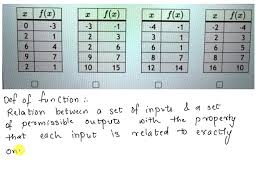 x f(x) x f(x) x f(x) x f(x)
0 -3 -3 -1 -4 -1 -2 -4
2 3 2 3 3 1 2 3
6 4 6 2 6 5
9 7 9 7 8 7 8 7
2 1 10 15 12 16 14 10
Def of function :.
Relation between a set of inputs & a set
of permissible outputs with the property
that each input is related to exactly
on